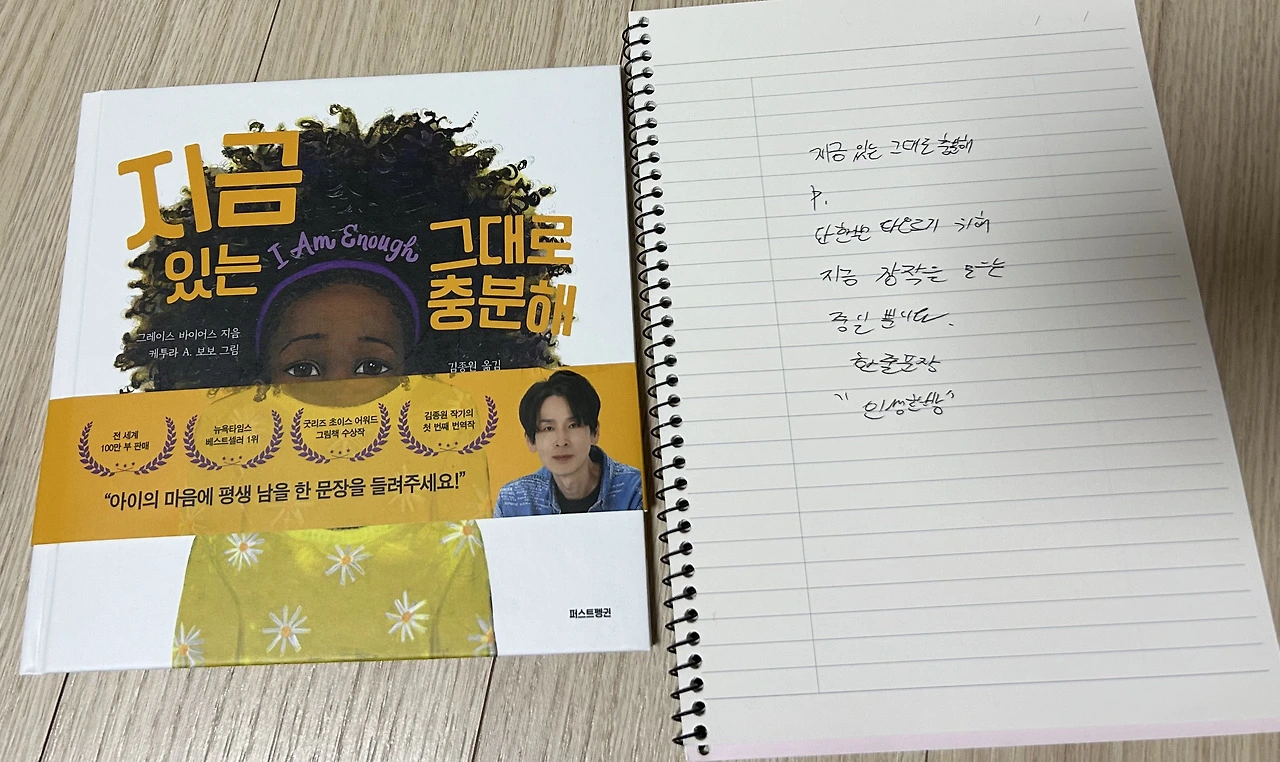 지금
있는
I Am Enough
그대로
충분해
그레이스 바이어스 지음
케투라 A. 보보 그림
김종원 옮김
전 세계
100만 부 판매
뉴욕타임스
베스트셀러 1위
굿리즈 초이스 어워드
그림책 수상작
김종원 작가의
첫 번째 번역작
“아이의 마음에 평생 남을 한 문장을 들려주세요!”
퍼스트펭귄
지금 있는 그대로 충분해
P.
단 한번 타오르기 위해
지금 장작을 모으는
중일 뿐이다.
한줄문장
"인생한방"